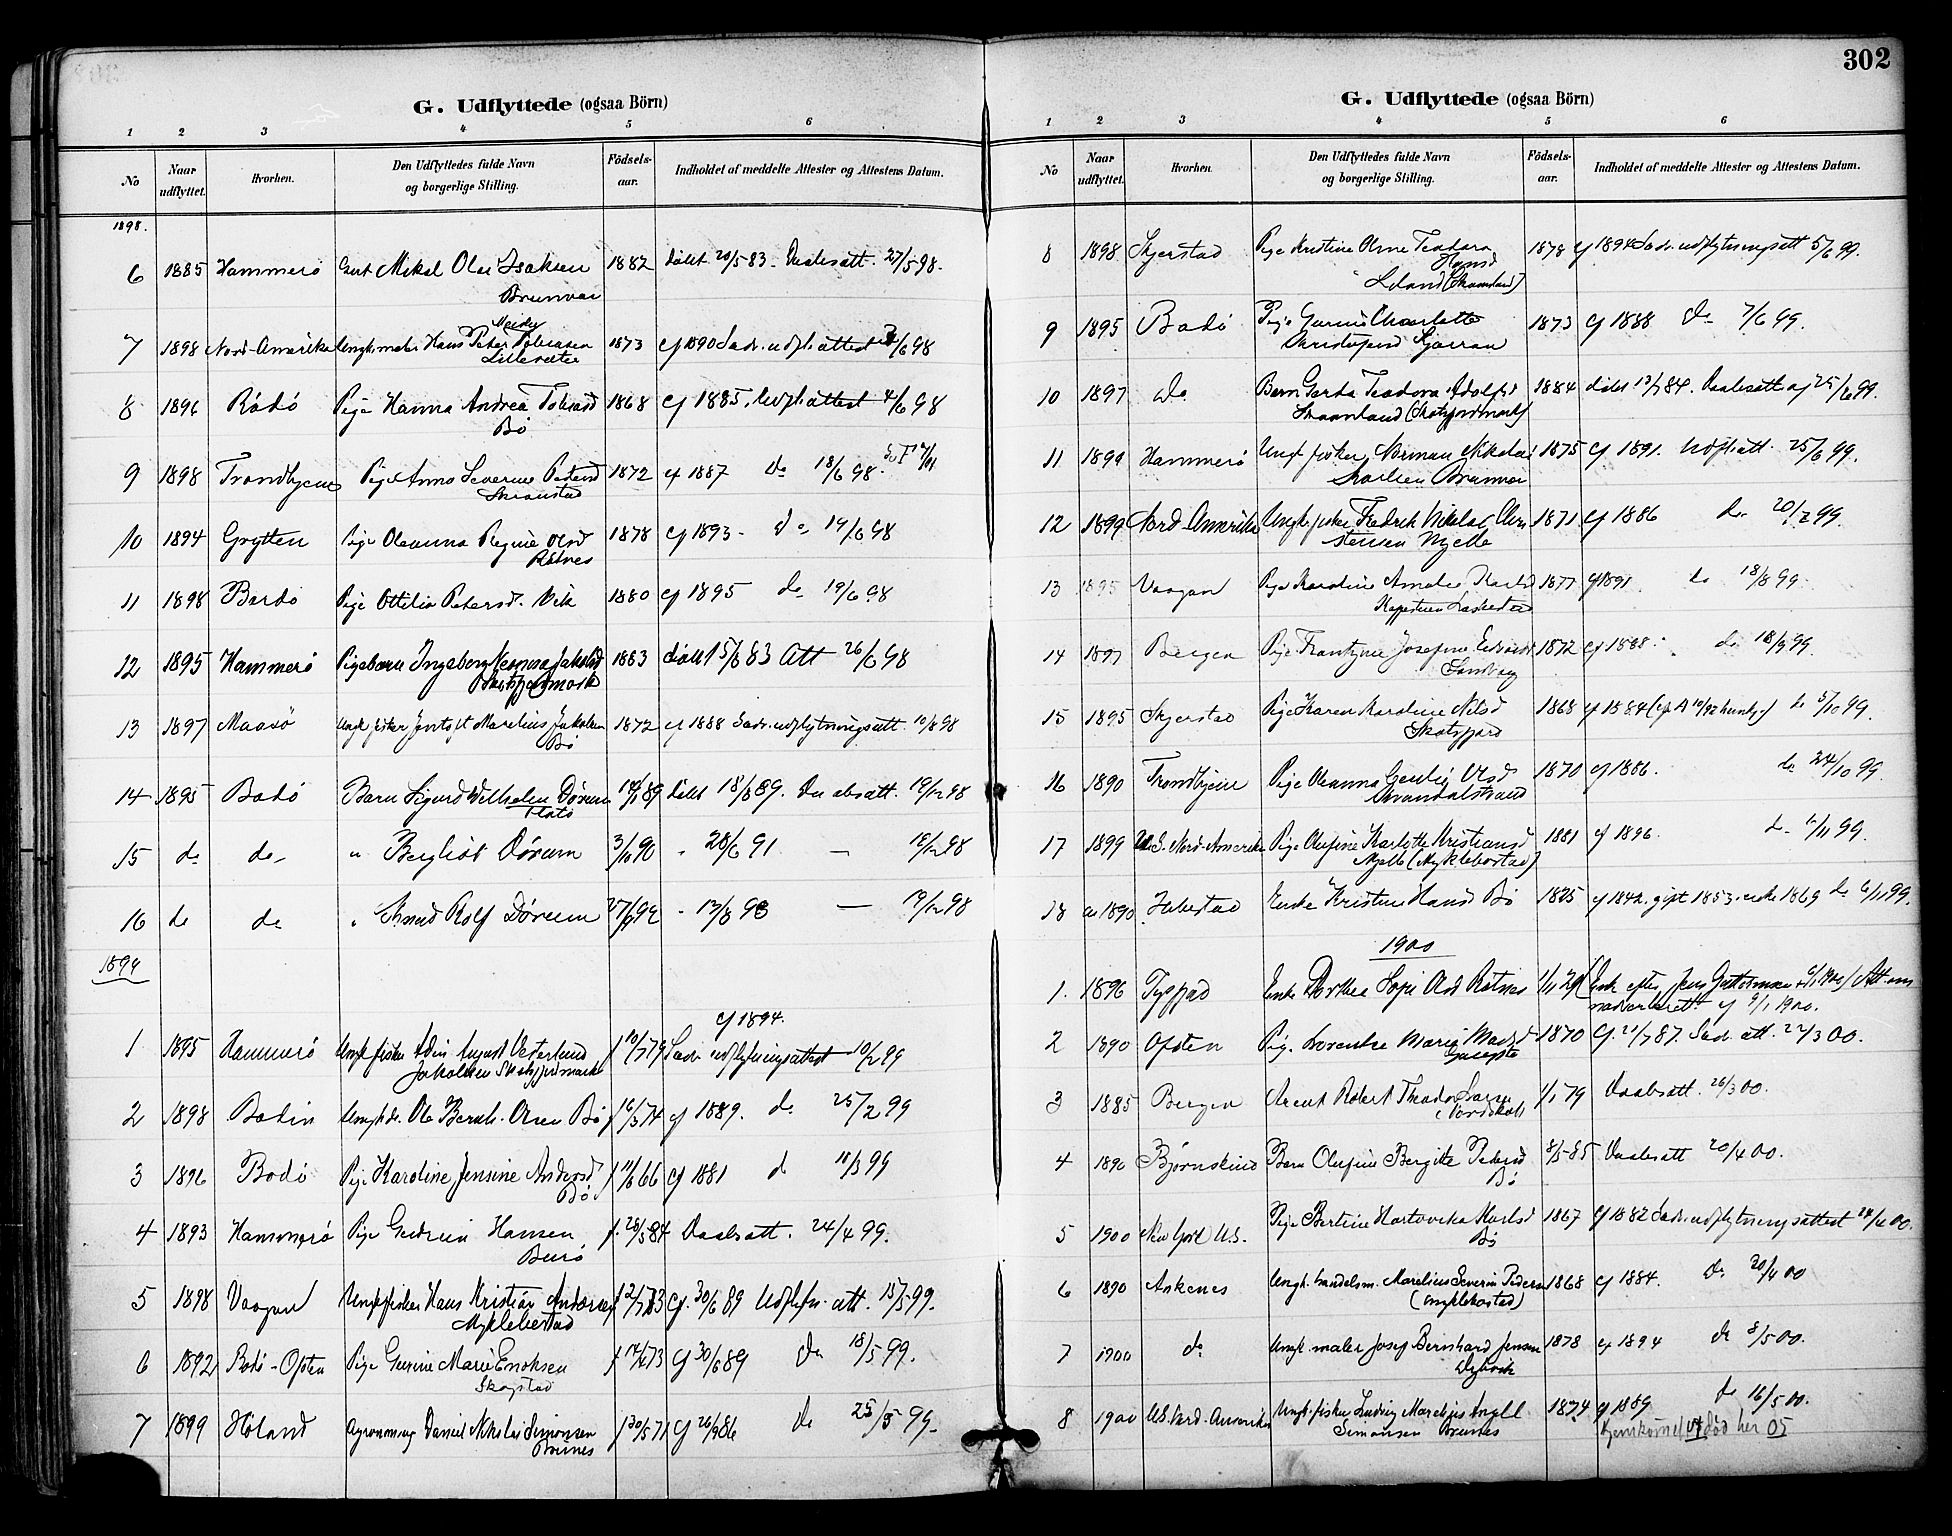 302
G. Udflyttede (ogsaa Börn)
1 2 3 4 5 6
No
Naar udflyttet.
Hvorhen.
Den Udflyttedes fulde Navn og borgerlige Stilling.
Födsels-aar.
Indholdet af meddelte Attester og Attestens Datum.
1898.
6 1885 Hammerö Mikal Olai Isaksen 1882 döbt 20/5 83. Daabsatt. 27/5 98.
7 1898 Nord-Amerika Ungk. maler Hans Peter Tobiasen 1873 cf 1890 Sædv. udfl. attest /6 98
8 1896 Rödö Pige Hanna Andrea 1868 cf 1885. Udfl. attest 4/6 98
Bö
9 1898 Trondhjem Pige Anna Severine Pedersd 1872 cf 1887 do 18/6 98.
10 1894 Grytten Pige Oleanna Regine Olsd 1878 cf 1893. do 19/6 98
Rötnes
11 1898 Pige Ottilia Petersd. Vik 1880 cf 1895 do 19/6 98
12 1895 Hammerö Pigebarn Ingeborg Jakobsd 1883 döbt 5/8 83 Att 26/6 98
13 1897 Maasö Ungk fisker Marelius Jakobsen 1872 cf 1888 Sædv. udflytningsatt. 10/8 98
Bö
14 1895 Bodö Barn Sigurd Wilhelm Dörum döbt 18/8 89. Daabsatt. 19/12 98
15 do do " Bergliot Dörum 3/10 90 " 28/6 91 — 19/12 98
16 do do " Knud Rolf Dörum 27/ 92 " 13/8 93 — 19/12 98
1899
cf 1894.
1 1895 Hammerö Ungk fisker Edin August Vesterlund f 10/7 79 Sædv udflytningsattest 10/2 99
2 1898 Bodin Ungk. do. Ole Bernh. Olsen Bö f 16/3 74 cf 1889. do 25/2 99
3 1896 Bodö Pige Karoline Jensine Andersd f 11/8 66 cf 1881 do 18/3 99
Bö
4 1893 Hammerö Pige Gudrun Hansen f. 28/5 84 Daabsatt. 24/4 99.
5 1898 Vaagan Ungk fisker Hans Kristian Andersen f 2/7 73 cf. 30/6 89 Udflytn. att. 15/5 99.
Myklebostad
6 1892 Bodö-Ofoten Pige Gurine Marie Enoksen f 14/6 73 cf 30/6 89 do 18/5 99.
Skogstad
7 1899 Höland Agronom Daniel Nikolai Simonsen f 30/5 71 cf 26/9 86 do 25/5 99.
Brunes
G. Udflyttede (ogsaa Börn)
1 2 3 4 5 6
No
Naar udflyttet.
Hvorhen.
Den Udflyttedes fulde Navn og borgerlige Stilling.
Födsels-aar.
Indholdet af meddelte Attester og Attestens Datum.
8 1898 Skjerstad Pige Kristine Teodora 1878 cf 1894 Sædv. udflytningsatt 5/6 99.
9 1895 Bodö Pige Charlotte 1873 cf 1888 do 7/6 99.
10 1897 do Barn Gerda Teodora Adolfsd 1884 döbt 13/7 84. Daabsatt af 25/6 99.
11 1899 Hammerö Ungk fisker Norman Nikolai 1875 cf 1891. Udfl. att. 25/6 99.
12 1899 Nord-Amerika Ungk. fisker Fredrik Nikolai 1871 cf 1886 do 20/7 99.
13 1895 Vaagan Pige Karoline Amalie Karlsd 1877 cf 1891 do 18/8 99.
14 1897 Bergen Pige Josefine 1872 cf 1888. do 18/9 99.
15 1895 Skjerstad Pige Karen Karoline Nilsd 1868 cf 1884 do 5/10 99.
Skotsfjord
16 1890 Trondhjem Pige Oleanna Olsd 1870 cf 1886. do 24/10 99.
17 1899 U.S. Nord-Amerika Pige Olufine Karlotte Kristiansd 1881 cf 1896. do 6/11 99.
Mjelle (Myklebostad)
18 ca 1890 Enke Kristine Hansd Bö 1825 cf 1842. gift 1853. enke 1869 do 6/11 99.
1900
1. 1896 Tysfjord Enke Dorthea Sofie Olsd Rötnes Enke efter Jens Guttormsen Att om
cf 9/1 1900.
2 1890 Ofoten Pige. Lorentze Marie Madsd 1870 Cf. 21/7 87. Sædv. att. 22/3 00.
3 1885 Bergen Arent Robert Theodor 1/1 79 Daabsatt. 26/3 00.
4 1890 Björnskind Barn Olufine Bergitte Pedersd 8/5 85 Daabsatt 20/4 00.
Bö
5 1900 New York U.S. Pige Bertine Hartvika Karlsd 1867 cf 1882 Sædv. udflytningsattest /4 00.
Bö
6 1890 Ankenes Ungk. handelsm. Marelius Severin Pedersen 1868 cf 1884. do 20/4 00
(Myklebostad)
7 1900 do Ungk. maler Josef Bernhard Jensen 1878 cf 1894 do 8/5 00.
8 1900 U.S. Nord-Amerika Ungk. fisker Ludvig Marelius Angell 1874 cf 1889 do 16/5 00.
Simonsen Brunes
Hjemkommet 04 död her 05